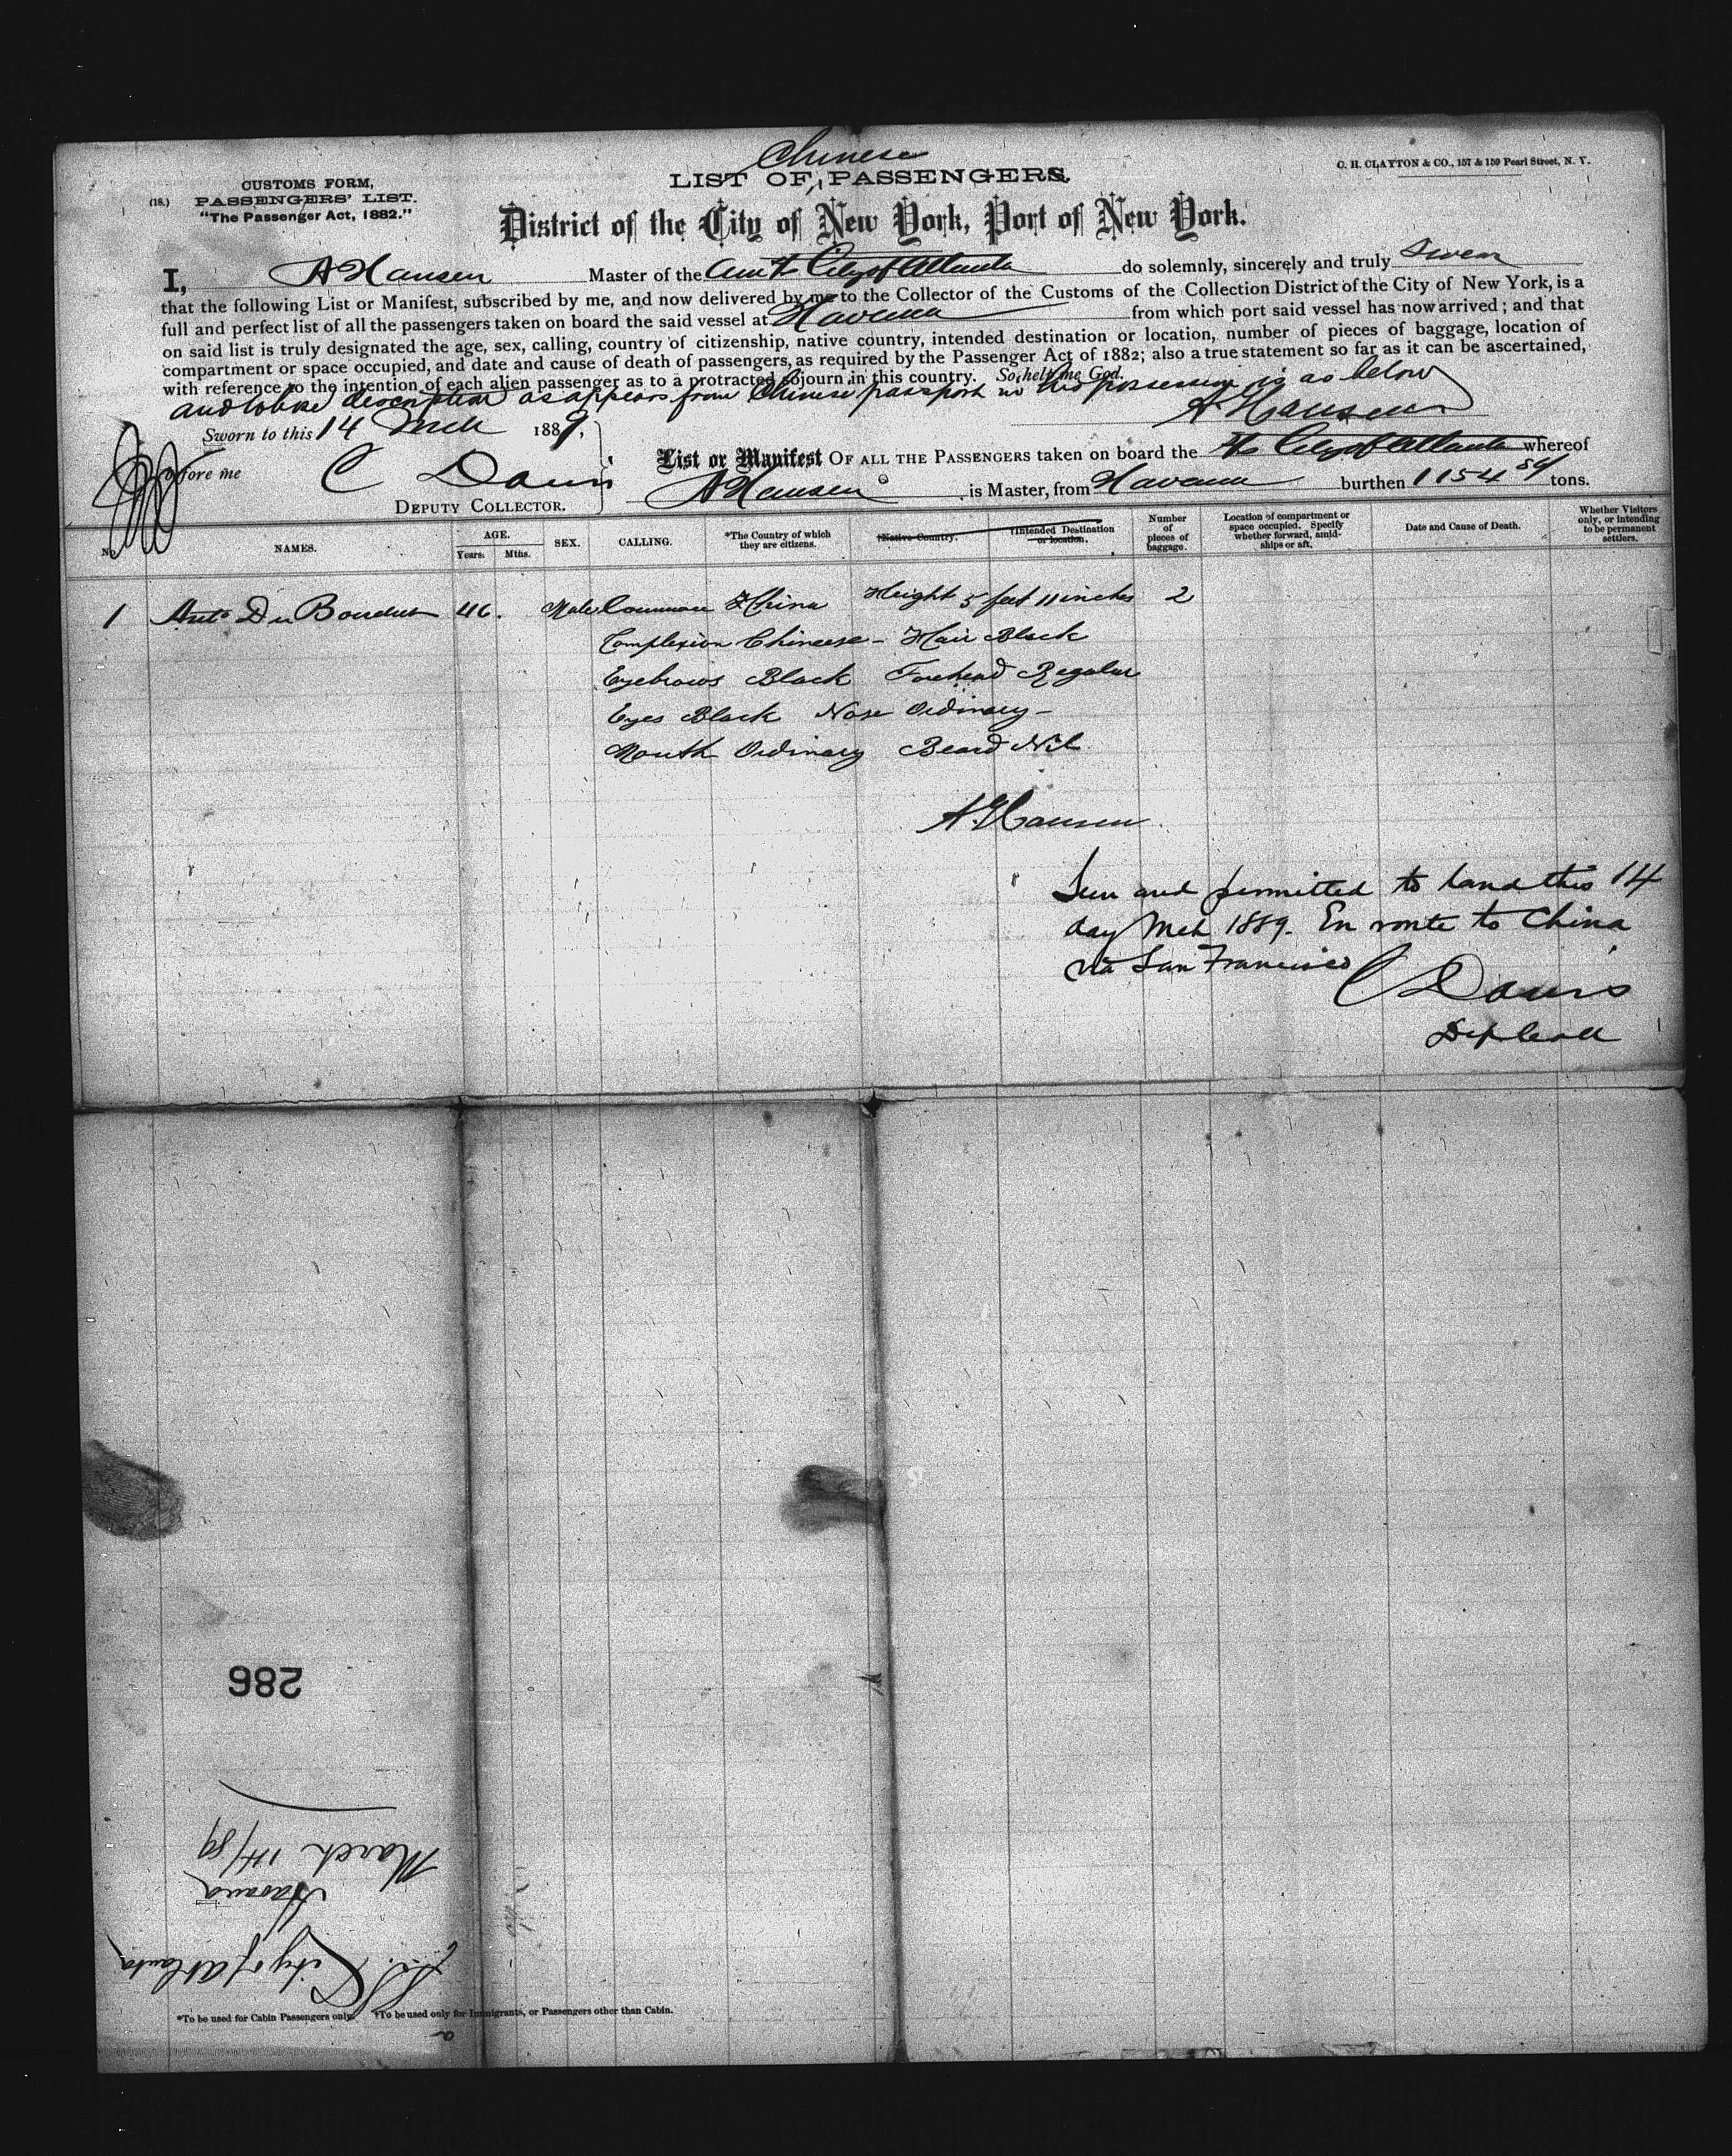 Chinese
LIST OF PASSENGERS,
C. H. CLAYTON & CO., 157 & 159 Pearl Street, N. Y.
(18.)
CUSTOMS FORM,
PASSENGERS' LIST.
"The Passenger Act, 1882."
District of the City of New York, Port of New York.
I, A Hansen Master of the City of Atlanta do solemnly, sincerely and truly swear
that the following List or Manifest, subscribed by me, and now delivered by me to the Collector of the Customs of the Collection District of the City of New York, is a
full and perfect list of all the passengers taken on board the said vessel at Havana from which port said vessel has now arrived; and that
on said list is truly designated the age, sex, calling, country of citizenship, native country, intended destination or location, number of pieces of baggage, location of
compartment or space occupied, and date and cause of death of passengers, as required by the Passenger Act of 1882; also a true statement so far as it can be ascertained,
with reference to the intention of each alien passenger as to a protracted sojourn in this country. So help me God.
description as appears from Chinese passport in his possession is as below
A Hansen
Sworn to this 14 Mch 1889,
before me C Davis
DEPUTY COLLECTOR.
List or Manifest OF ALL THE PASSENGERS taken on board the City of Atlanta whereof
A Hansen is Master, from Havana burthen 1154 tons.
No. NAMES. AGE. Years. Mths. SEX. CALLING. *The Country of which they are citizens. †Native Country. †Intended Destination or location. Number of pieces of baggage. Location of compartment or space occupied. Specify whether forward, amidships or aft. Date and Cause of Death. Whether Visitors only, or intending to be permanent settlers.
1 46. Male China Height 5 feet 11 inches 2
Complexion Chinese - Hair Black
Eyebrows Black Forehead Regular
Eyes Black Nose Ordinary -
Mouth Ordinary Beard Nil
A. Hansen
Seen and permitted to land this 14
day Mch 1889. En route to China
via San Francisco
C Davis
Dep Coll
286
S.S. City of Atlanta
Havana
March 14/89
*To be used for Cabin Passengers only. †To be used only for Immigrants, or Passengers other than Cabin.